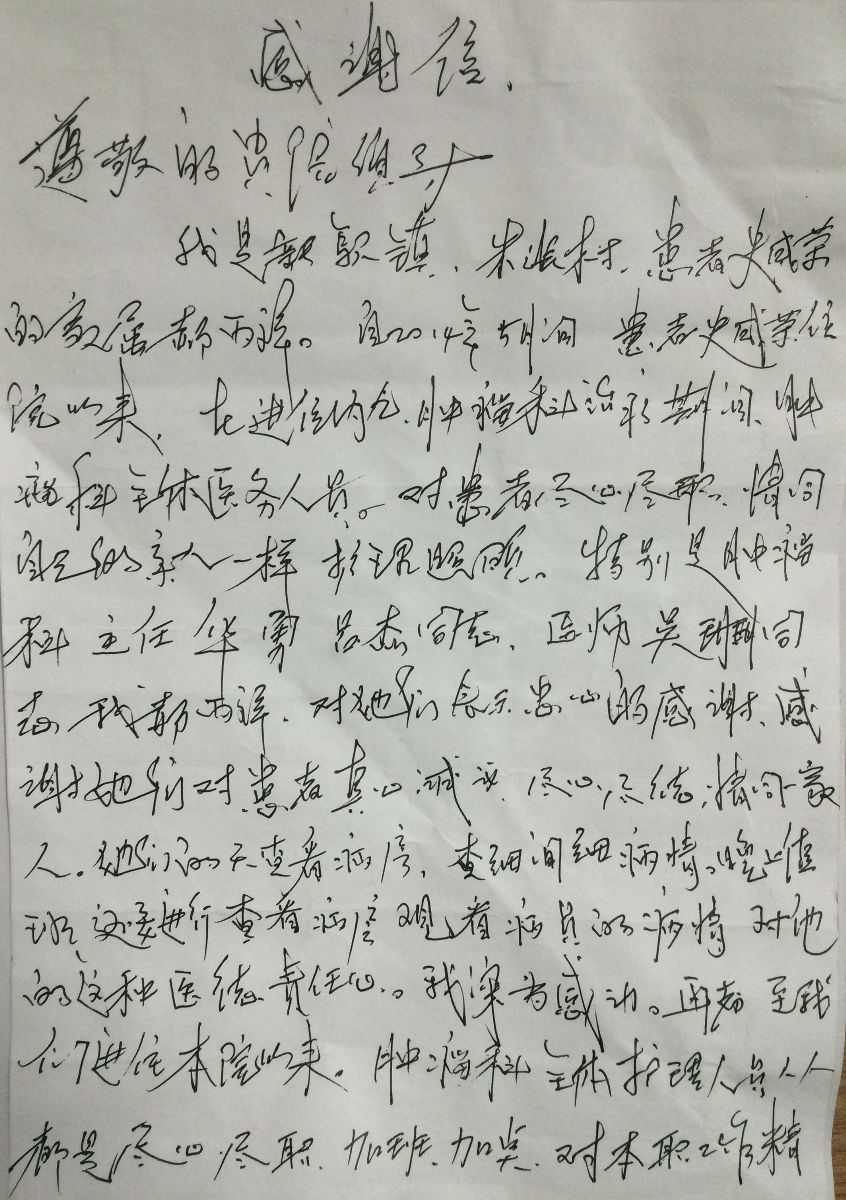 感谢信.
尊敬的贵院领导
我是 镇. 朱 村. 患者史成荣
的家属郝丙祥。自2014年 月间 患者史成荣住
院以来, 在进住内九.肿瘤科治疗期间、肿
瘤科全体医务人员。对患者尽心尽职. 情同
自己的亲人一样 护理照顾。特别是肿瘤
科 主任 华勇 吕杰同志. 医师 吴 同
志 我郝丙祥. 对她们表示衷心的感谢、感
谢她们对患者真心诚意. 尽心尽德, 情同一家
人。她们白天查看病房, 查细问细病情。晚上值
班 还要进行查看病房 观看病员的病情 对他
的这种医德. 责任心。我深为感动。再者 至我
们进住本院以来。肿瘤科 全体护理人员人人
都是尽心尽职. 加班. 加点. 对本职工作精